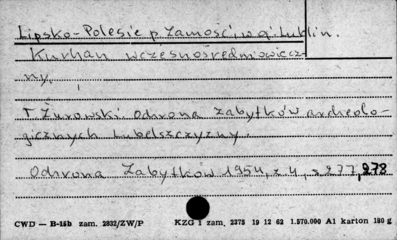 Lipsko-Polesie p. Zamość, woj. Lublin.
Kurhan wczesnośredniowiecz-
ny.
T. Żurowski Ochrona zabytków archeolo-
gicznych Lubelszczyzny.
Ochrona Zabytków 1954, z 4, s 277, 278
CWD — B-15b zam. 2832/ZW/P KZG 1 zam. 2375 19 12 62 1.570.000 A1 karton 180 g